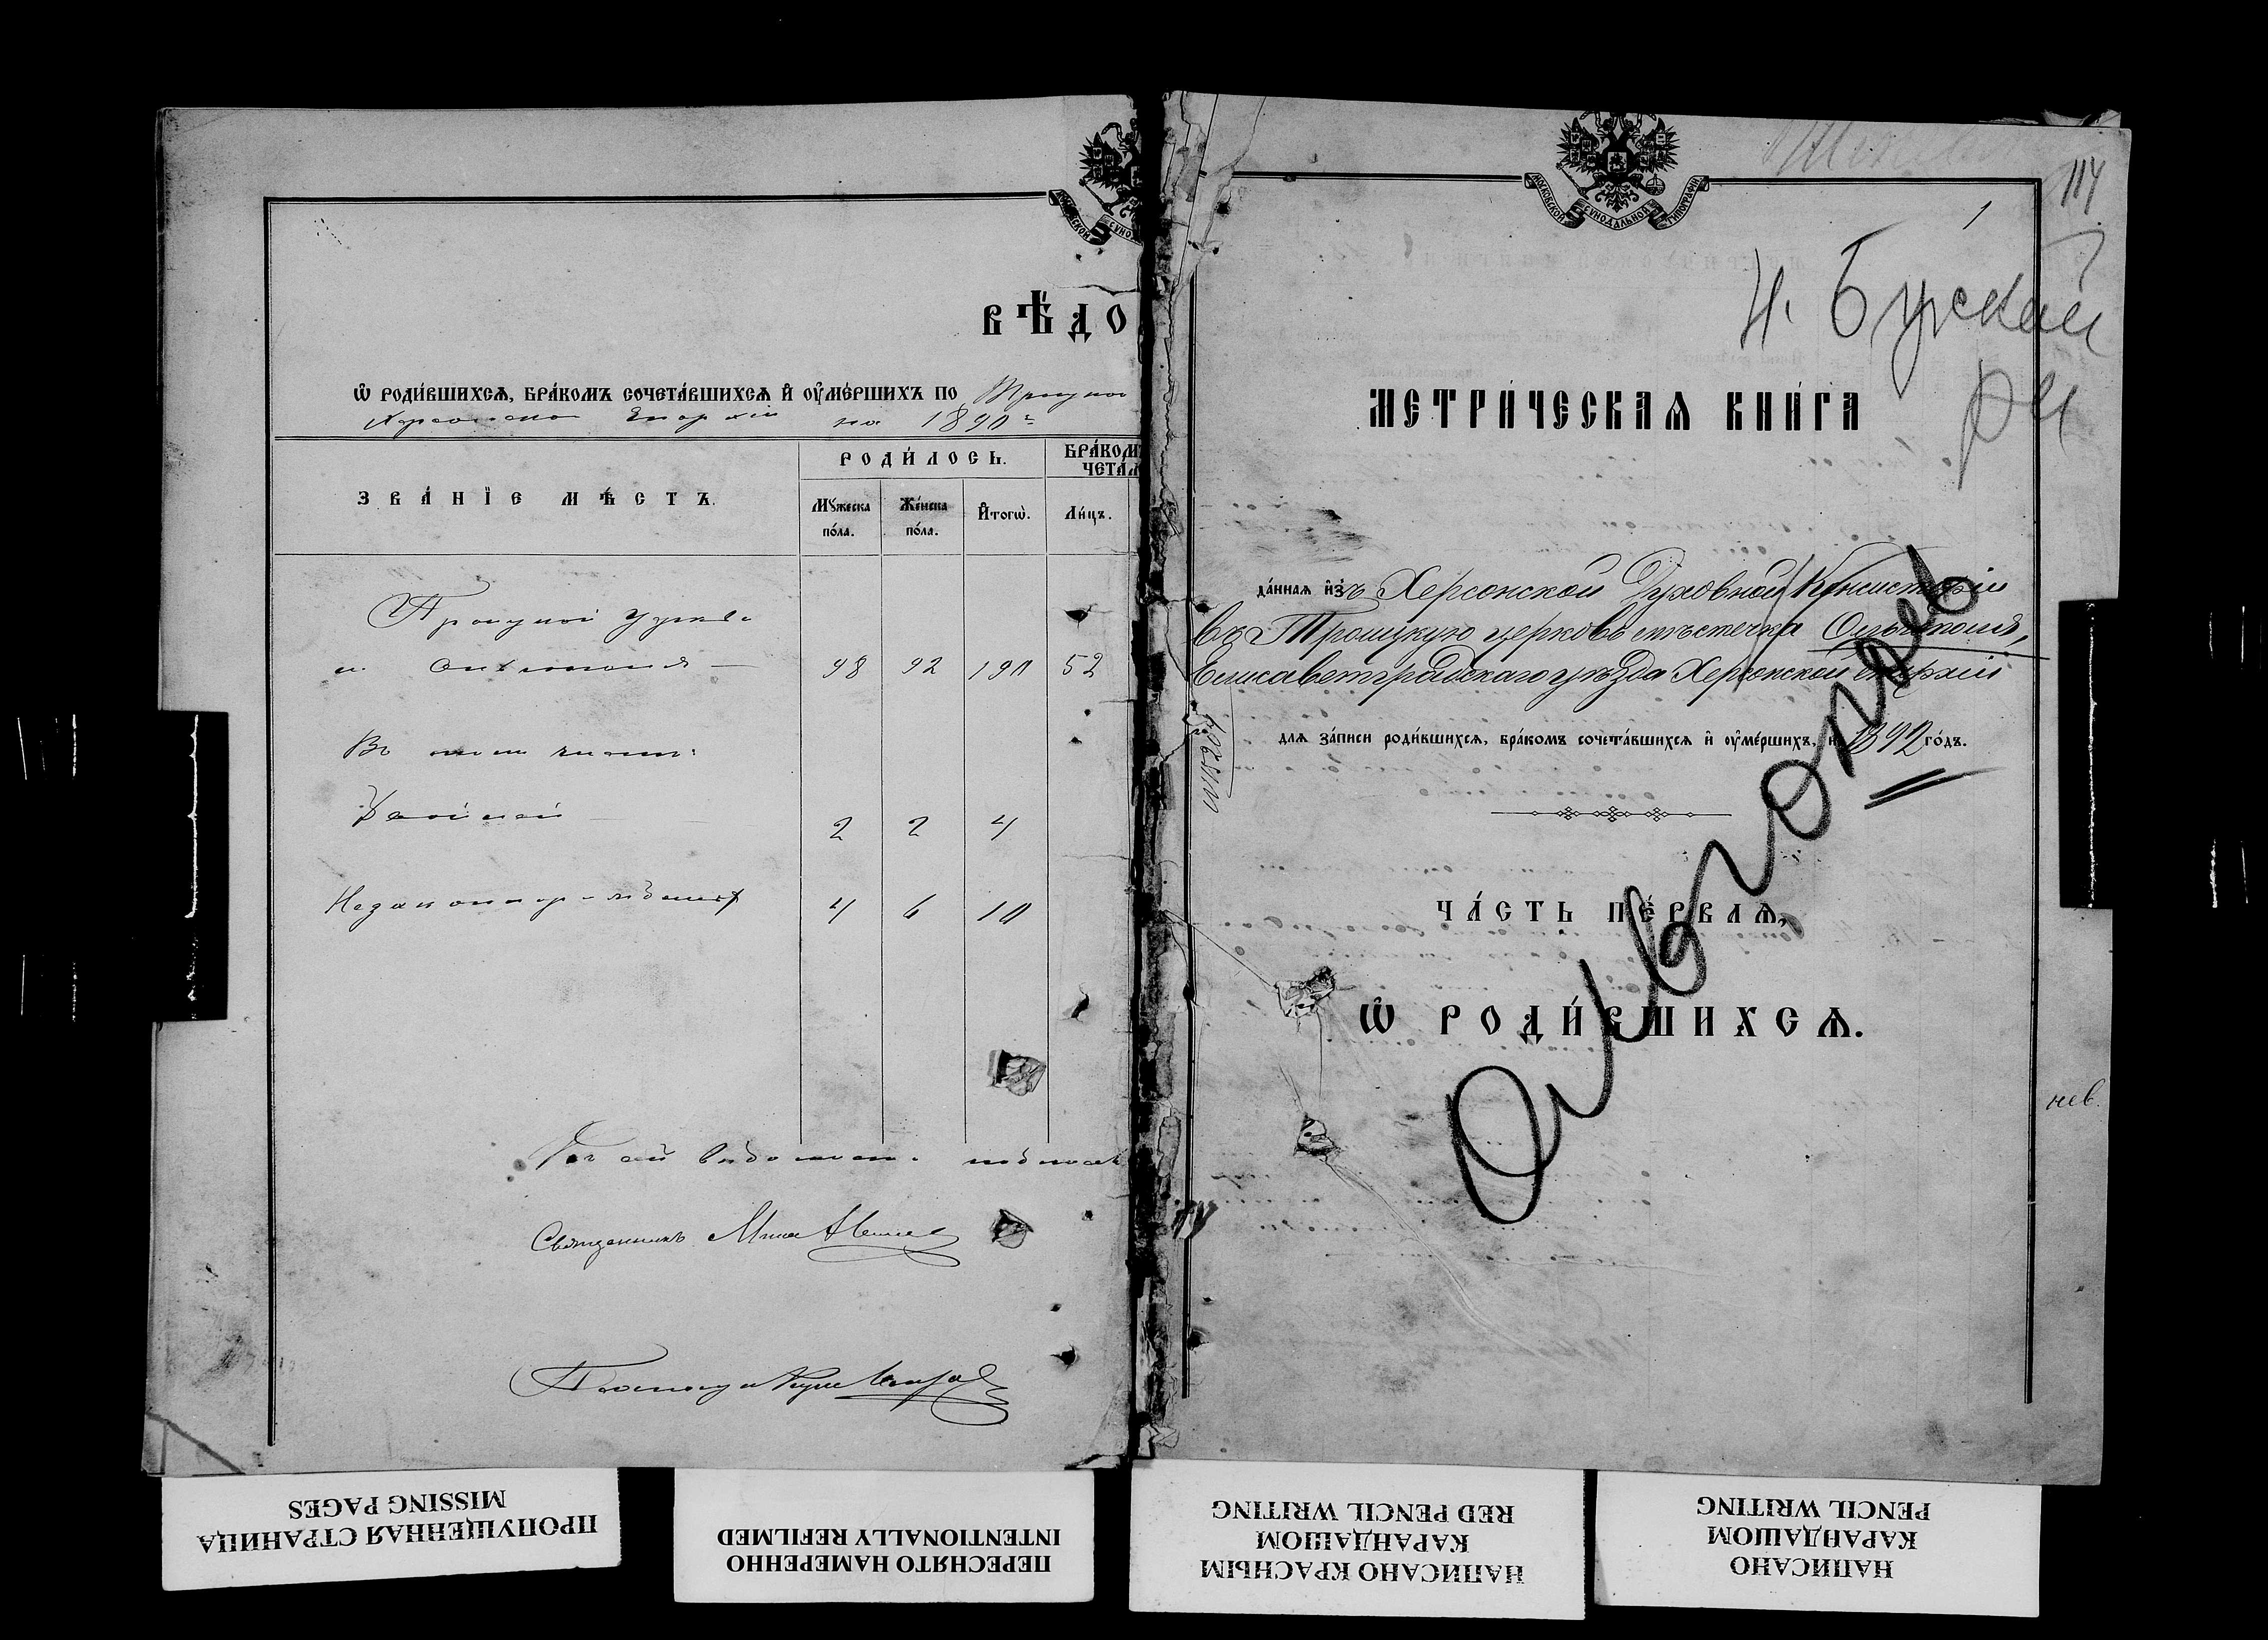 МОСКОВСКОЙ СѴНОДА
ВѢДО
Ѡ РОДИ́ВШИХСЯ, БРА́КОМЪ СОЧЕТА́ВШИХСЯ И҆ ОУ҆МЕ́РШИХЪ ПО Троицкой
Херсонской Епархіи на 1890 г.
ЗВА́НІЕ МѢ́СТЪ.
РОДИ́ЛОСЬ.
БРА́КОМЪ
ЧЕТА́Л
Мꙋжеска по́ла.
Же́нска по́ла.
И҆тогѡ̀.
Ли́цъ.
Троицкой церкви
м. Ольгополя — 98 92 190 52
Въ томъ числѣ:
Двойней 2 2 4
Незаконнорожденныхъ 4 6 10
Къ сей вѣдомости подписал
Священникъ
Псаломщикъ
МОСКОВСКОЙ СѴНОДАЛЬНОЙ ТИПОГРАФІИ
1
114
Н. Бугский
р-н
МЕТРИ́ЧЕСКАЯ КНИ́ГА
да́нная и҆зъ Херсонской Духовной Консисторіи
въ Троицкую церковь мѣстечка Ольгополя,
Елисаветградскаго уѣзда Херсонской епархіи
для за́писи роди́вшихся, бра́комъ сочета́вшихся и҆ оу҆ме́ршихъ, н 1892 го́дъ.
ЧА́СТЬ ПЕ́РВАЯ,
Ѡ РОДИ́ВШИХСЯ.
Ольгополь
нев.
ПРОПУЩЕННАЯ СТРАНИЦА
MISSING PAGES
ПЕРЕСНЯТО НАМЕРЕННО
INTENTIONALLY REFILMED
НАПИСАНО КРАСНЫМ
КАРАНДАШОМ
RED PENCIL WRITING
НАПИСАНО
КАРАНДАШОМ
PENCIL WRITING